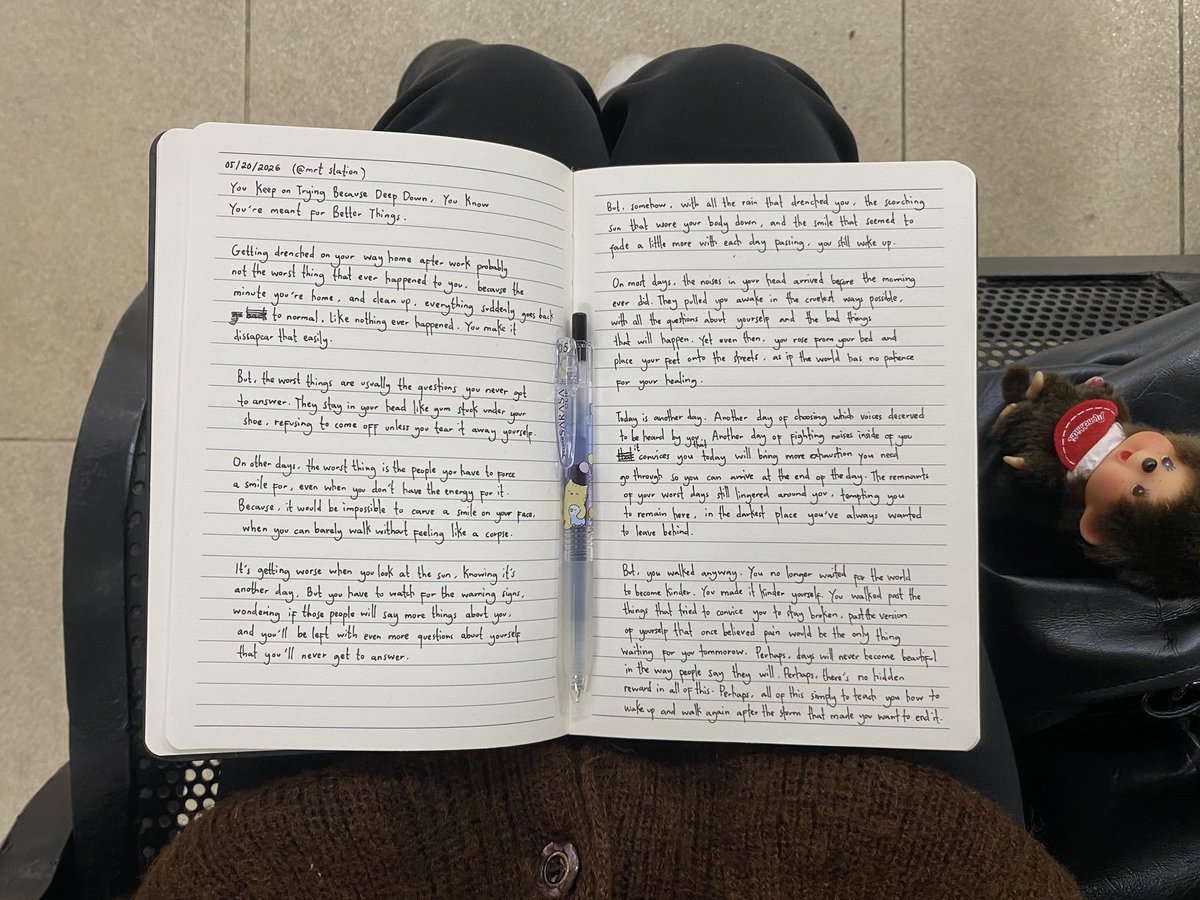 05/20/2026 (@mrt station)
You Keep on Trying Because Deep Down, You Know
You're meant for Better Things.
Getting drenched on your way home after work probably
not the worst thing that ever happened to you, because the
minute you're home, and clean up, everything suddenly goes back
to normal. Like nothing ever happened. You make it
dissapear that easily.
But, the worst things are usually the questions you never got
to answer. They stay in your head like gum stuck under your
shoe, refusing to come off unless you tear it away yourself.
On other days, the worst thing is the people you have to force
a smile for, even when you don't have the energy for it.
Because, it would be impossible to carve a smile on your face,
when you can barely walk without feeling like a corpse.
It's getting worse when you look at the sun, knowing it's
another day. But you have to watch for the warning signs,
wondering if those people will say more things about you,
and you'll be left with even more questions about yourself
that you'll never get to answer.
But, somehow, with all the rain that drenched you, the scorching
sun that wore your body down, and the smile that seemed to
fade a little more with each day passing, you still woke up.
On most days, the noises in your head arrived before the morning
ever did. They pulled you awake in the cruelest ways possible,
with all the questions about yourself and the bad things
that will happen. Yet even then, you rose from your bed and
place your feet onto the streets, as if the world has no patience
for your healing.
Today is another day. Another day of choosing which voices deserved
to be heard by you. Another day of fighting noises inside of you
that it convices you today will bring more exhaustion you need
go through so you can arrive at the end of the day. The remnants
of your worst days still lingered around you, tempting you
to remain here, in the darkest place you've always wanted
to leave behind.
But, you walked anyway. You no longer waited for the world
to become kinder. You made it kinder yourself. You walked past the
things that tried to convice you to stay broken, past the version
of yourself that once believed pain would be the only thing
waiting for you tommorow. Perhaps, days will never become beautiful
in the way people say they will. Perhaps, there's no hidden
reward in all of this. Perhaps, all of this simply to teach you how to
wake up and walk again after the storm that made you want to end it.